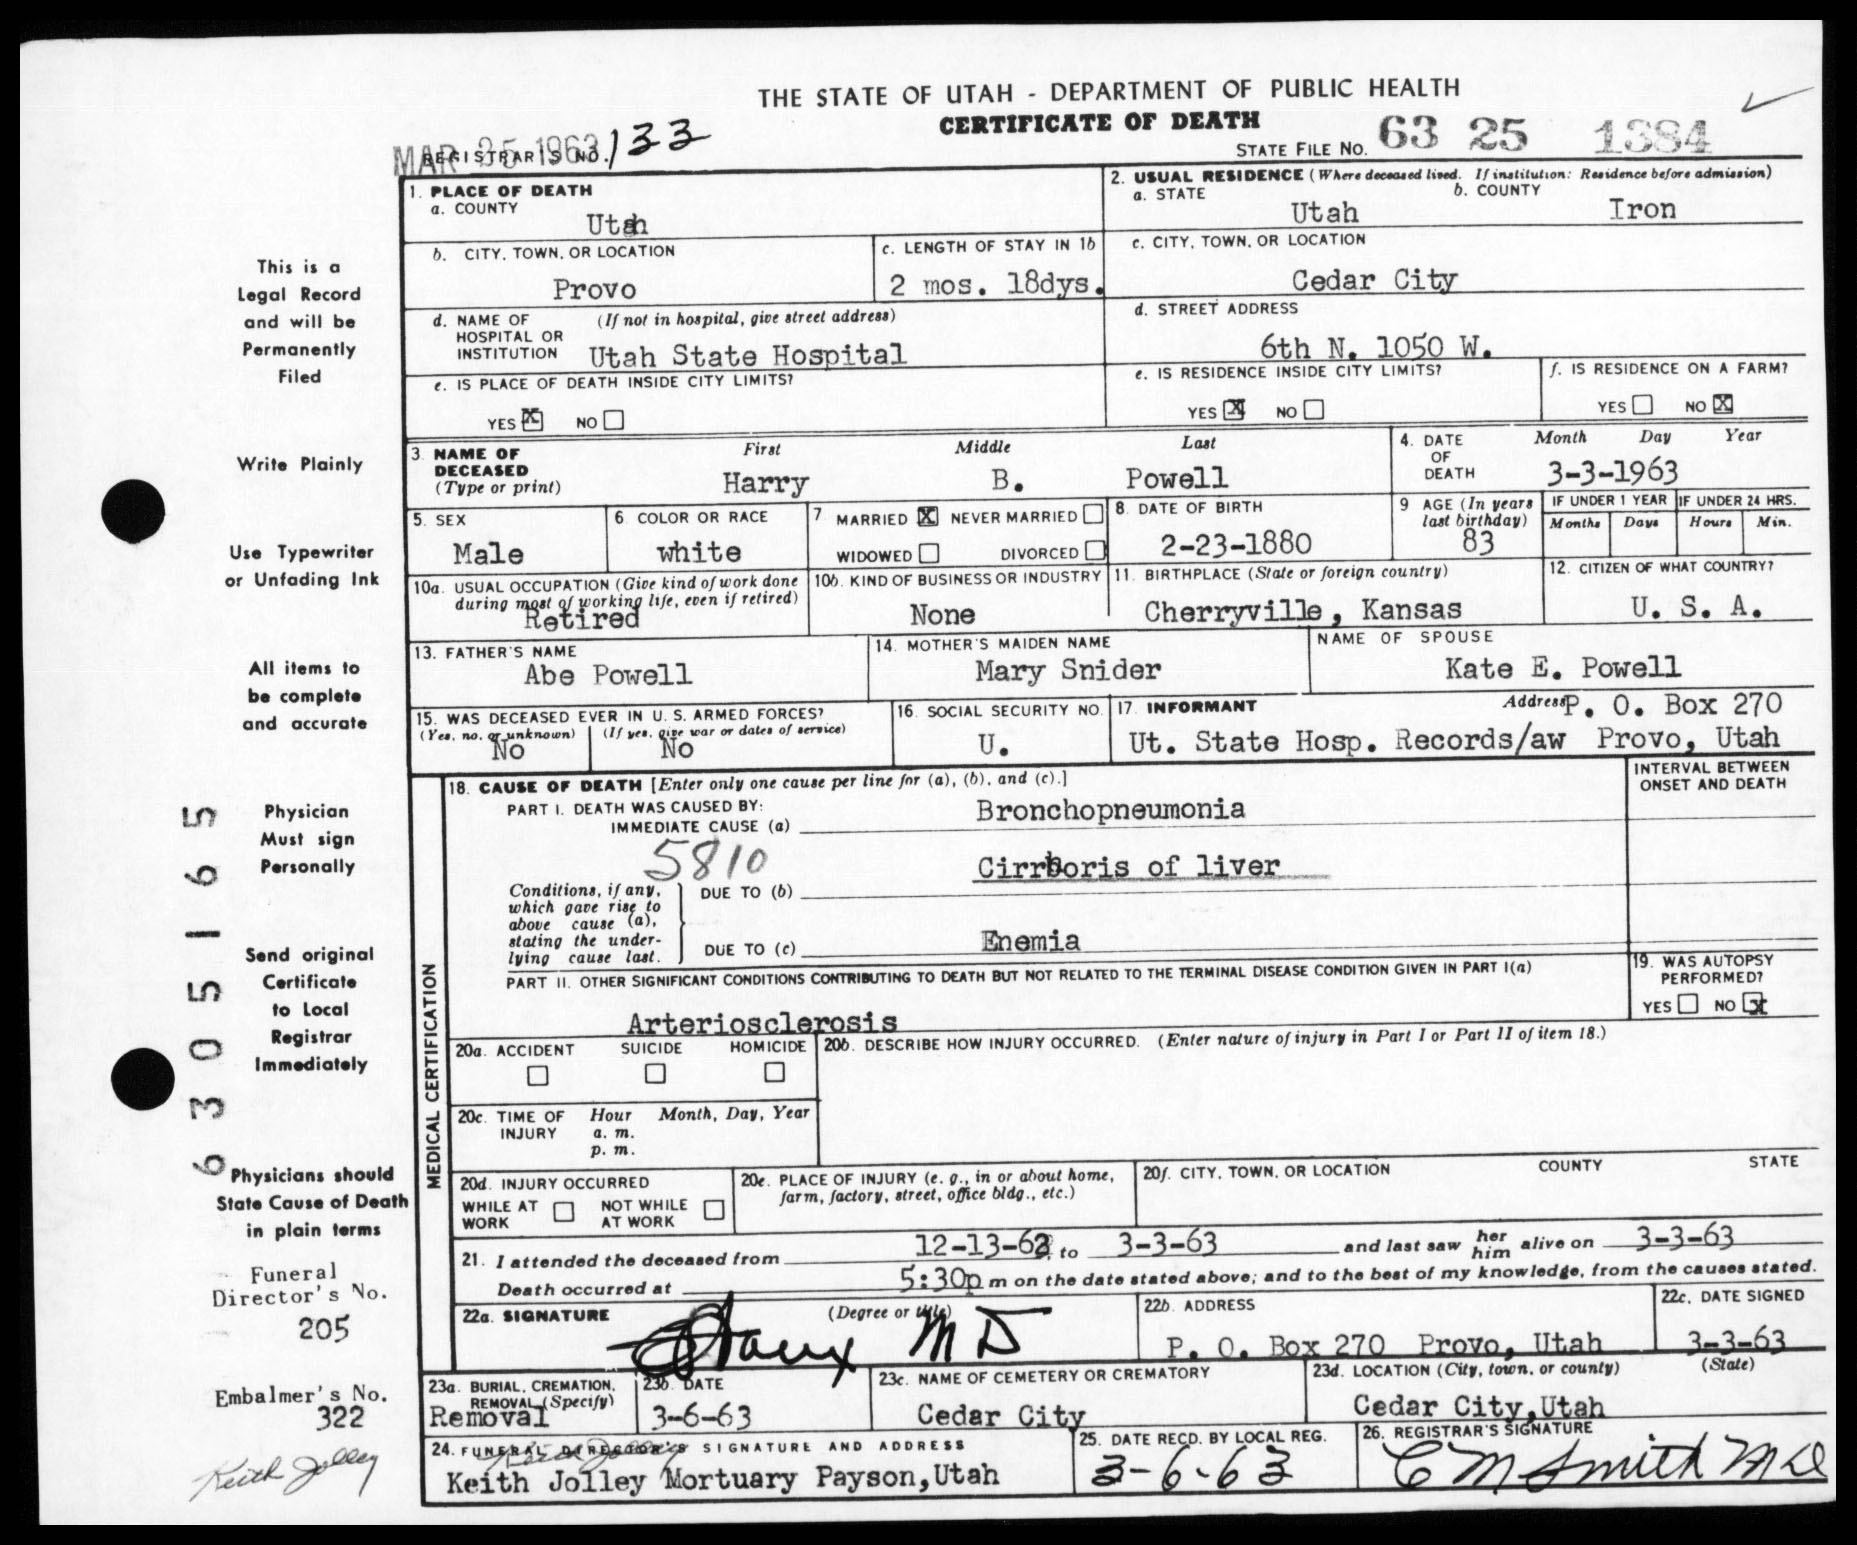 THE STATE OF UTAH - DEPARTMENT OF PUBLIC HEALTH
CERTIFICATE OF DEATH
MAR 25 1963
REGISTRAR'S NO. 133
STATE FILE NO. 63 25 1384
1. PLACE OF DEATH
a. COUNTY
Utah
2. USUAL RESIDENCE (Where deceased lived. If institution: Residence before admission)
a. STATE
Utah
b. COUNTY
Iron
b. CITY, TOWN, OR LOCATION
Provo
c. LENGTH OF STAY IN 1b
2 mos. 18dys.
c. CITY, TOWN, OR LOCATION
Cedar City
d. NAME OF HOSPITAL OR INSTITUTION
(If not in hospital, give street address)
Utah State Hospital
d. STREET ADDRESS
6th N. 1050 W.
e. IS PLACE OF DEATH INSIDE CITY LIMITS?
YES X NO
e. IS RESIDENCE INSIDE CITY LIMITS?
YES X NO
f. IS RESIDENCE ON A FARM?
YES NO X
3. NAME OF DECEASED (Type or print)
First Middle Last
Harry B. Powell
4. DATE OF DEATH
Month Day Year
3-3-1963
5. SEX
Male
6. COLOR OR RACE
white
7. MARRIED X NEVER MARRIED
WIDOWED DIVORCED
8. DATE OF BIRTH
2-23-1880
9 AGE (In years last birthday)
83
IF UNDER 1 YEAR
Months Days
IF UNDER 24 HRS.
Hours Min.
10a. USUAL OCCUPATION (Give kind of work done during most of working life, even if retired)
Retired
10b. KIND OF BUSINESS OR INDUSTRY
None
11. BIRTHPLACE (State or foreign country)
Cherryville, Kansas
12. CITIZEN OF WHAT COUNTRY?
U. S. A.
13. FATHER'S NAME
Abe Powell
14. MOTHER'S MAIDEN NAME
Mary Snider
NAME OF SPOUSE
Kate E. Powell
15. WAS DECEASED EVER IN U. S. ARMED FORCES?
(Yes, no, or unknown) (If yes, give war or dates of service)
No No
16. SOCIAL SECURITY NO.
U.
17. INFORMANT
Address P. O. Box 270
Ut. State Hosp. Records/aw Provo, Utah
MEDICAL CERTIFICATION
18. CAUSE OF DEATH [Enter only one cause per line for (a), (b), and (c).]
INTERVAL BETWEEN ONSET AND DEATH
PART I. DEATH WAS CAUSED BY:
IMMEDIATE CAUSE (a) Bronchopneumonia
5810
Conditions, if any, which gave rise to above cause (a), stating the underlying cause last.
DUE TO (b) Cirrhoris of liver
DUE TO (c) Enemia
PART II. OTHER SIGNIFICANT CONDITIONS CONTRIBUTING TO DEATH BUT NOT RELATED TO THE TERMINAL DISEASE CONDITION GIVEN IN PART I(a)
Arteriosclerosis
19. WAS AUTOPSY PERFORMED?
YES NO X
20a. ACCIDENT SUICIDE HOMICIDE
20b. DESCRIBE HOW INJURY OCCURRED. (Enter nature of injury in Part I or Part II of item 18.)
20c. TIME OF INJURY
Hour Month, Day, Year
a. m.
p. m.
20d. INJURY OCCURRED
WHILE AT WORK NOT WHILE AT WORK
20e. PLACE OF INJURY (e. g., in or about home, farm, factory, street, office bldg., etc.)
20f. CITY, TOWN, OR LOCATION COUNTY STATE
21. I attended the deceased from 12-13-62, to 3-3-63 and last saw her him alive on 3-3-63
Death occurred at 5:30p m on the date stated above; and to the best of my knowledge, from the causes stated.
22a. SIGNATURE (Degree or title)
MD
22b. ADDRESS
P. O. Box 270 Provo, Utah
22c. DATE SIGNED
3-3-63
23a. BURIAL, CREMATION, REMOVAL (Specify)
Removal
23b. DATE
3-6-63
23c. NAME OF CEMETERY OR CREMATORY
Cedar City
23d. LOCATION (City, town, or county) (State)
Cedar City, Utah
24. FUNERAL DIRECTOR'S SIGNATURE AND ADDRESS
Keith Jolley
Keith Jolley Mortuary Payson, Utah
25. DATE RECD. BY LOCAL REG.
3-6-63
26. REGISTRAR'S SIGNATURE
C M Smith MD
This is a
Legal Record
and will be
Permanently
Filed
Write Plainly
Use Typewriter
or Unfading Ink
All items to
be complete
and accurate
Physician
Must sign
Personally
Send original
Certificate
to Local
Registrar
Immediately
Physicians should
State Cause of Death
in plain terms
Funeral
Director's No.
205
Embalmer's No.
322
Keith Jolley
6305165